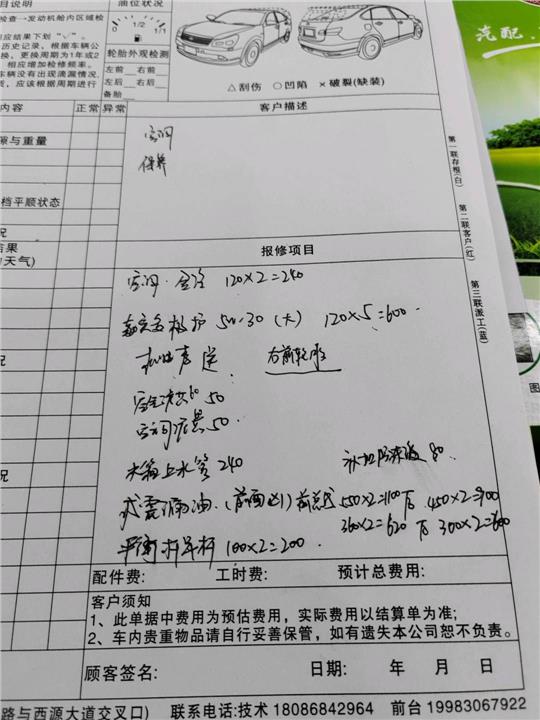 目说明
油位状况
检查一发动机舱内区域检
汽配
相应结果下划"√"。
历史记录，根据车辆公
换，更换周期为1年或2
相应增加检修频率。
车辆没有出现滴漏情况，
质，应该根据周期进行
0 1/2 1/1
轮胎外观检测
左前 右前
左后 右后
备胎
△刮伤 ○凹陷 ×破裂(缺装)
内容 正常 异常
客户描述
空调
保养
隙与重量
档平顺状态
况
结果
内天气)
第一联存根(白)
第二联客户(红)
第三联派工(蓝)
报修项目
120×2=240
5W-30 (大) 120×5=600
右前轮胎
50
50
水箱上水管 240
防冻液 80
550×2=1100 450×2=900
360×2=620 300×2=600
平衡杆吊杆 100×2=200
况
配件费: 工时费: 预计总费用:
客户须知
1、此单据中费用为预估费用，实际费用以结算单为准;
2、车内贵重物品请自行妥善保管，如有遗失本公司恕不负责。
顾客签名: 日期: 年 月 日
路与西源大道交叉口) 联系电话:技术 18086842964 前台 19983067922